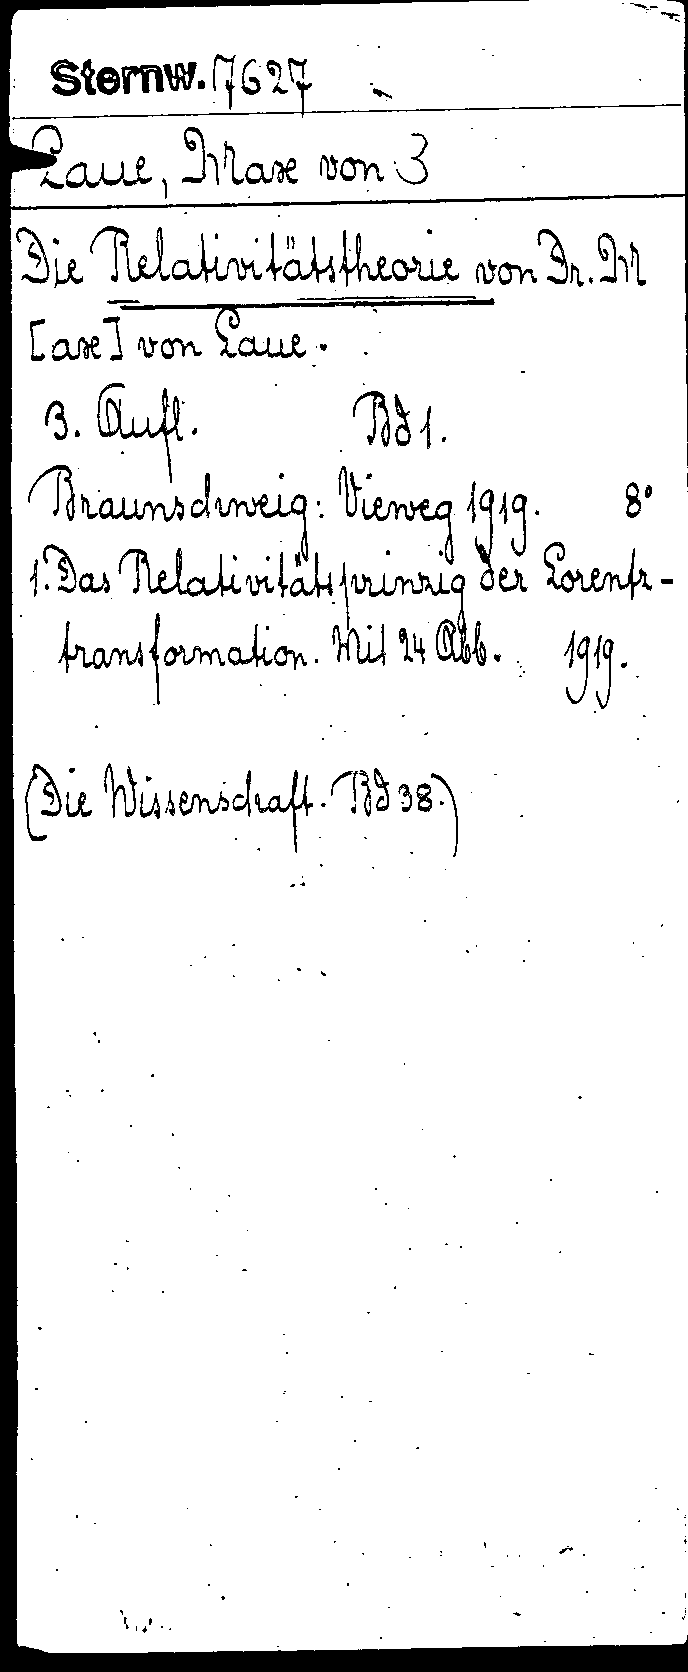 Sternw. 7627
Laue, Max von 3
Die Relativitätstheorie von Dr. M
[ax] von Laue.
3. Aufl. Bd 1.
Braunschweig: Vieweg 1919. 8°
1. Das Relativitätsprinzip der Lorentz-
transformation. Mit 24 Abb. 1919.
(Die Wissenschaft. Bd 38.)